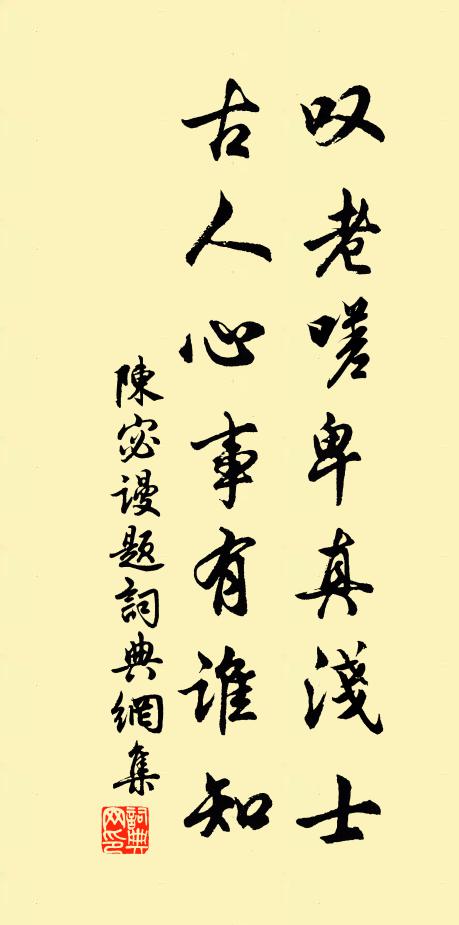 叹老嗟卑真淺士
古人心事有誰知
陳宓谩题詞典網集
詞典网印